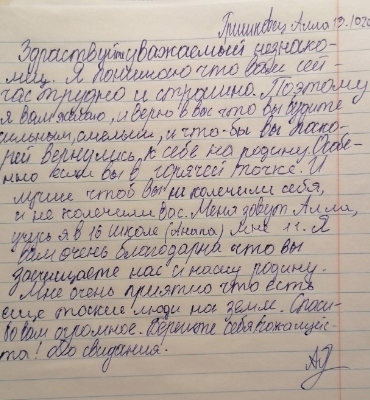 Гришковец Алла 19.10.20
Здраствуйте уважаемый незнако-
мец. Я понимаю что вам сей-
час трудно и страшно. Поэтому
я вам желаю, и верю в вас что вы будите
сильным, смелым, и что-бы вы поско-
рей вернулись, к себе на родину. Особе-
нно если вы в горячей точке. И
лучше чтоб вы не колечили себя,
и не колечили вас. Меня зовут Алла,
учусь я в 16 школе (Анапа) мне 11. Я
вам очень благодарна что вы
защищаете нас и нашу родину.
Мне очень приятно что есть
еще такие люди на земле. Спаси-
бо вам огромное. Берегите себя пожалуйс-
та! До свидания.